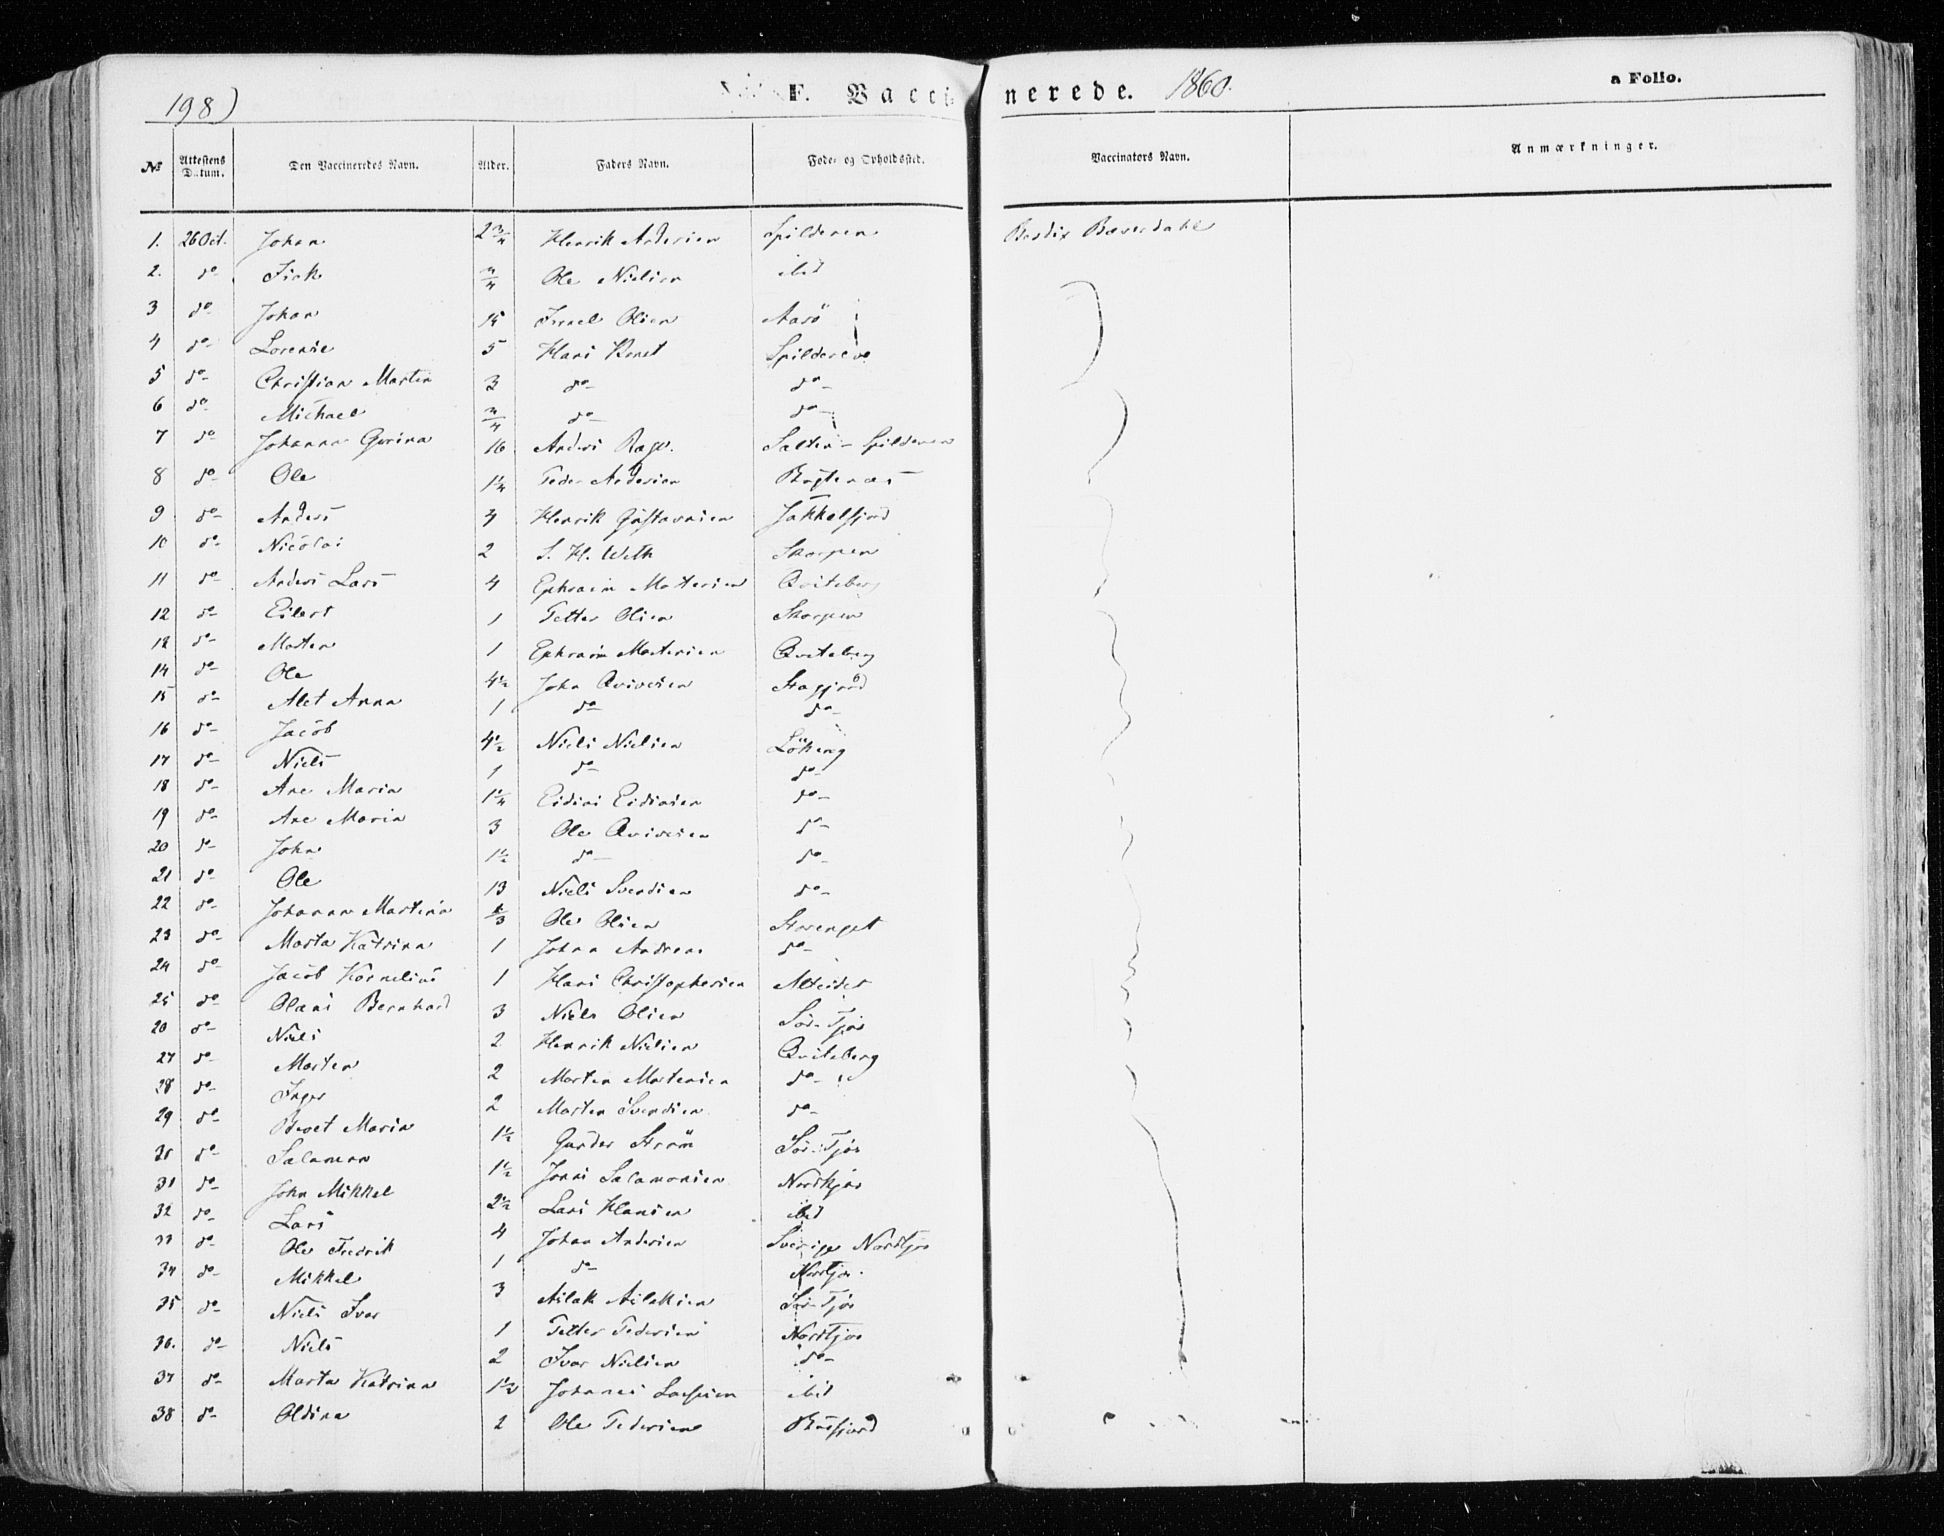 198) F. Vaccinerede. 1860. a Folio.
№ Attestens Datum. Den Vaccineredes Navn. Alder. Faders Navn. Føde- og Opholdssted. Vaccinators Navn. Anmærkninger.
1. 26 Oct. Johan 2 3/4 Henrik Andersen Spilderen
2. do Isak 3/4 Ole Nielsen ibid
3 do Johan 15 Israel Olsen Aasö
4 do Lorense 5 Hans
5 do Christian Martin 3 do do
6 do Michael 3/4 do do
7 do Johanna 16 Anders Spilderen
8 do Ole 1 1/4 Peder Andersen
9 do Anders 3 Henrik Gustavsen Jökkelfjord
10 do Nicolai 2 S. H. Weth Skorpen
11 do Anders Lars 4 Ephraim Mortensen Qviteberg
12 do Eilert 1 Petter Olsen Skorpen
13 do Morten 1 Ephraim Mortensen Qviteberg
14 do Ole 4 1/2 John Qvivesen
15 do Alet Anna 1 do do
16 do Jacob 4 1/2 Niels Nielsen
17 do Niels 1 do do
18 do Ane Maria 1 1/4 do
19 do Ane Maria 3 Ole Qvivesen do
20 do John 1 1/2 do do
21 do Ole 13 Niels Svendsen do
22 do Johanna Martina Ole Olsen Storenget
23 do Marta Katrina 1 Johan Andreas do
24 do Jacob Kornelius 1 Hans Christophersen Alteidet
25 do Olaus Bernhard 3 Niels Olsen
26 do Niels 2 Henrik Nielsen Qviteberg
27 do Morten 2 Morten Mortensen do
28 do Inger 2 Morten Svendsen do
29 do Maria 1 1/2 Ström
30 do Salamon 1 1/2 Salamonsen
31 do John Mikkel 2 1/2 Lars Hansen ibid
32 do Lars 4 Johan Andersen Sverige
33 do Ole Fredrik 1 do
34 do Mikkel 3 Aslak Aslaksen
35 do Niels Ivar 1 Petter Pedersen
36. do Niels 2 Ivar Nielsen do
37 do Marta Katrina 1 1/2 Johannes ibid
38 do Oldina 2 Ole Pedersen